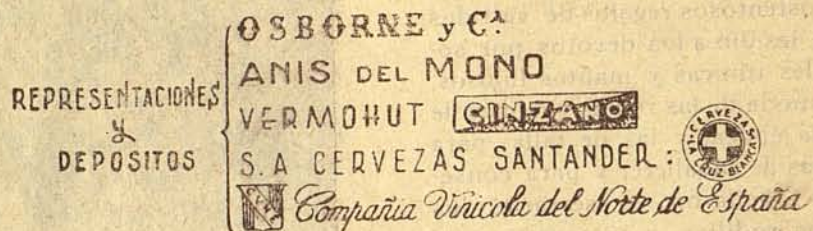 REPRESENTACIONES
y
DEPOSITOS
OSBORNE y Cª
ANIS DEL MONO
VERMOHUT CINZANO
S.A CERVEZAS SANTANDER: CERVEZAS LA CRUZ BLANCA
CVNE Compañia Vinicola del Norte de España